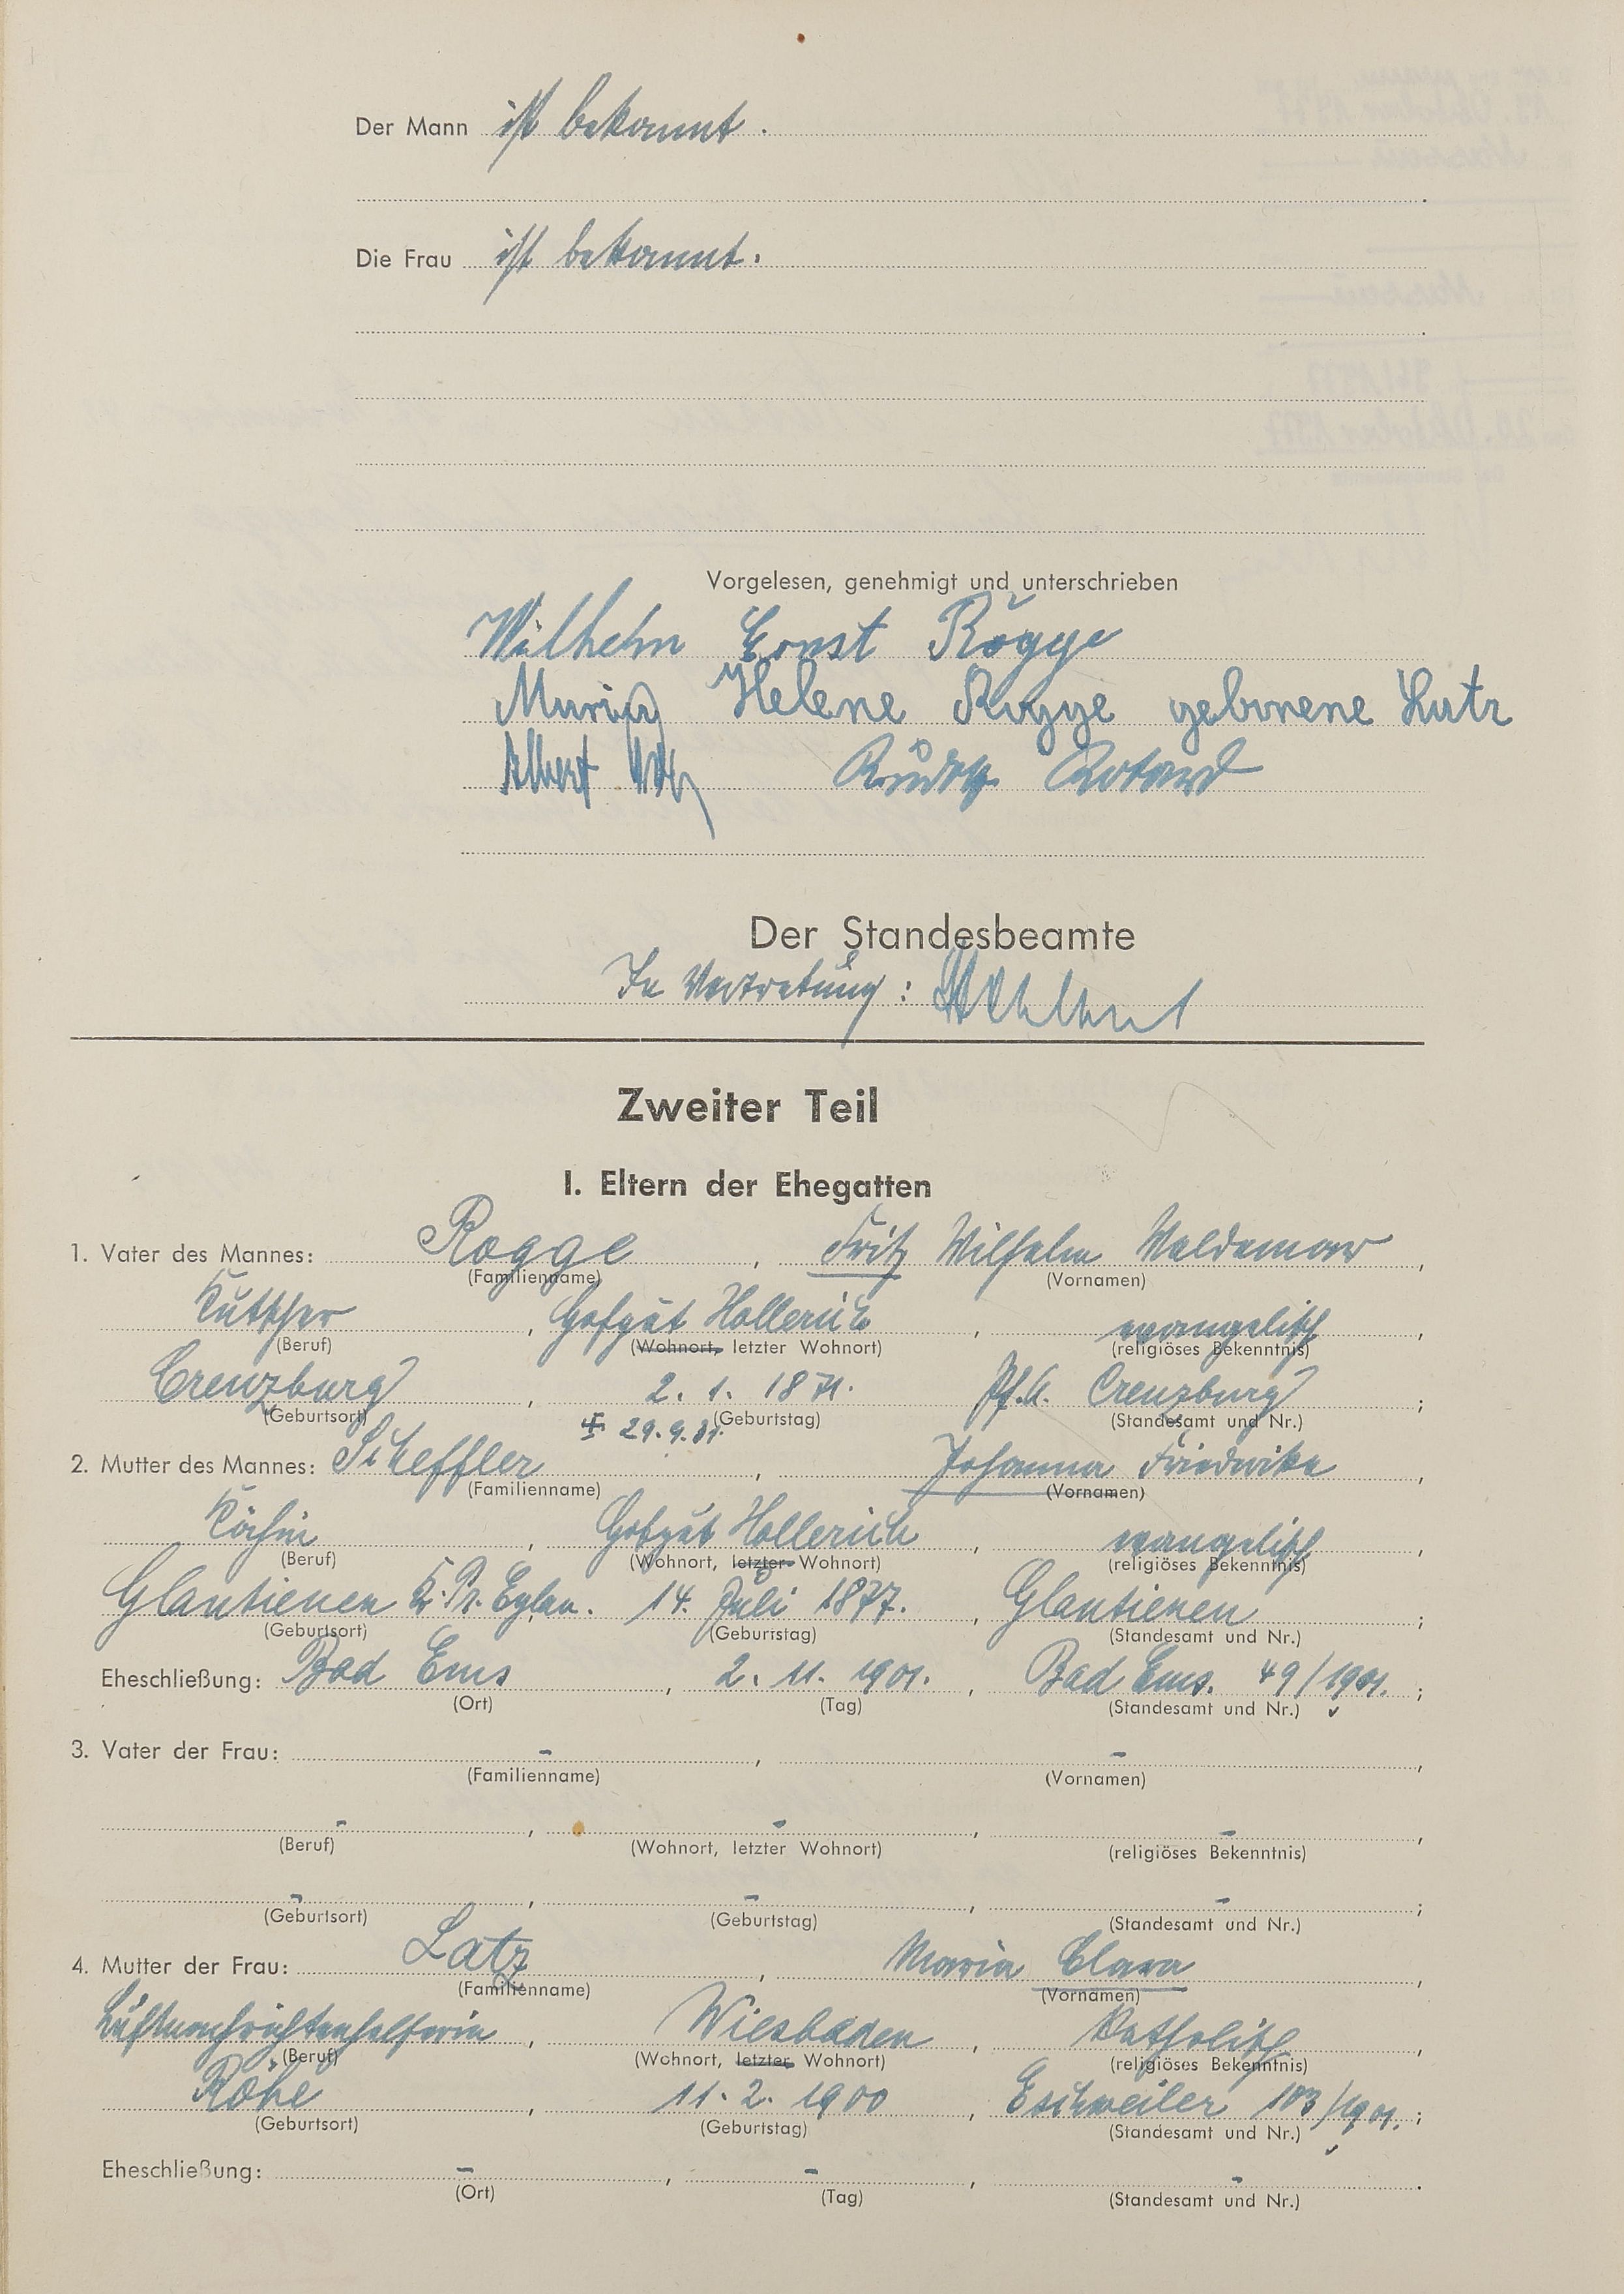 Der Mann ist bekannt.
Die Frau ist bekannt.
Vorgelesen, genehmigt und unterschrieben
Wilhelm Ernst Rogge
Maria Helene Rogge geborene Latz
Albert
Der Standesbeamte
In Vertretung:
Zweiter Teil
I. Eltern der Ehegatten
1. Vater des Mannes: Rogge, Fritz Wilhelm Waldemar,
(Familienname) (Vornamen)
Kutscher, Hofgut Hollerich, evangelisch,
(Beruf) (Wohnort, letzter Wohnort) (religiöses Bekenntnis)
Creuzburg, 2. 1. 1871. Pf.A. Creuzburg;
(Geburtsort) (Geburtstag) (Standesamt und Nr.)
29.9.31.
2. Mutter des Mannes: Scheffler, Johanna Friederike,
(Familienname) (Vornamen)
Köchin, Hofgut Hollerich, evangelisch,
(Beruf) (Wohnort, letzter Wohnort) (religiöses Bekenntnis)
Glautienen K. Pr. Eylau. 14. Juli 1877., Glautienen;
(Geburtsort) (Geburtstag) (Standesamt und Nr.)
Eheschließung: Bad Ems, 2. 11. 1901., Bad Ems. 49/1901.;
(Ort) (Tag) (Standesamt und Nr.)
3. Vater der Frau: -, -,
(Familienname) (Vornamen)
-, -, -,
(Beruf) (Wohnort, letzter Wohnort) (religiöses Bekenntnis)
-, -, -;
(Geburtsort) (Geburtstag) (Standesamt und Nr.)
4. Mutter der Frau: Latz, Maria Clara,
(Familienname) (Vornamen)
Luftnachrichtenhelferin, Wiesbaden, katholisch,
(Beruf) (Wohnort, letzter Wohnort) (religiöses Bekenntnis)
Röhe, 11. 2. 1900, Eschweiler 103/1901.;
(Geburtsort) (Geburtstag) (Standesamt und Nr.)
Eheschließung: -, -, -.
(Ort) (Tag) (Standesamt und Nr.)